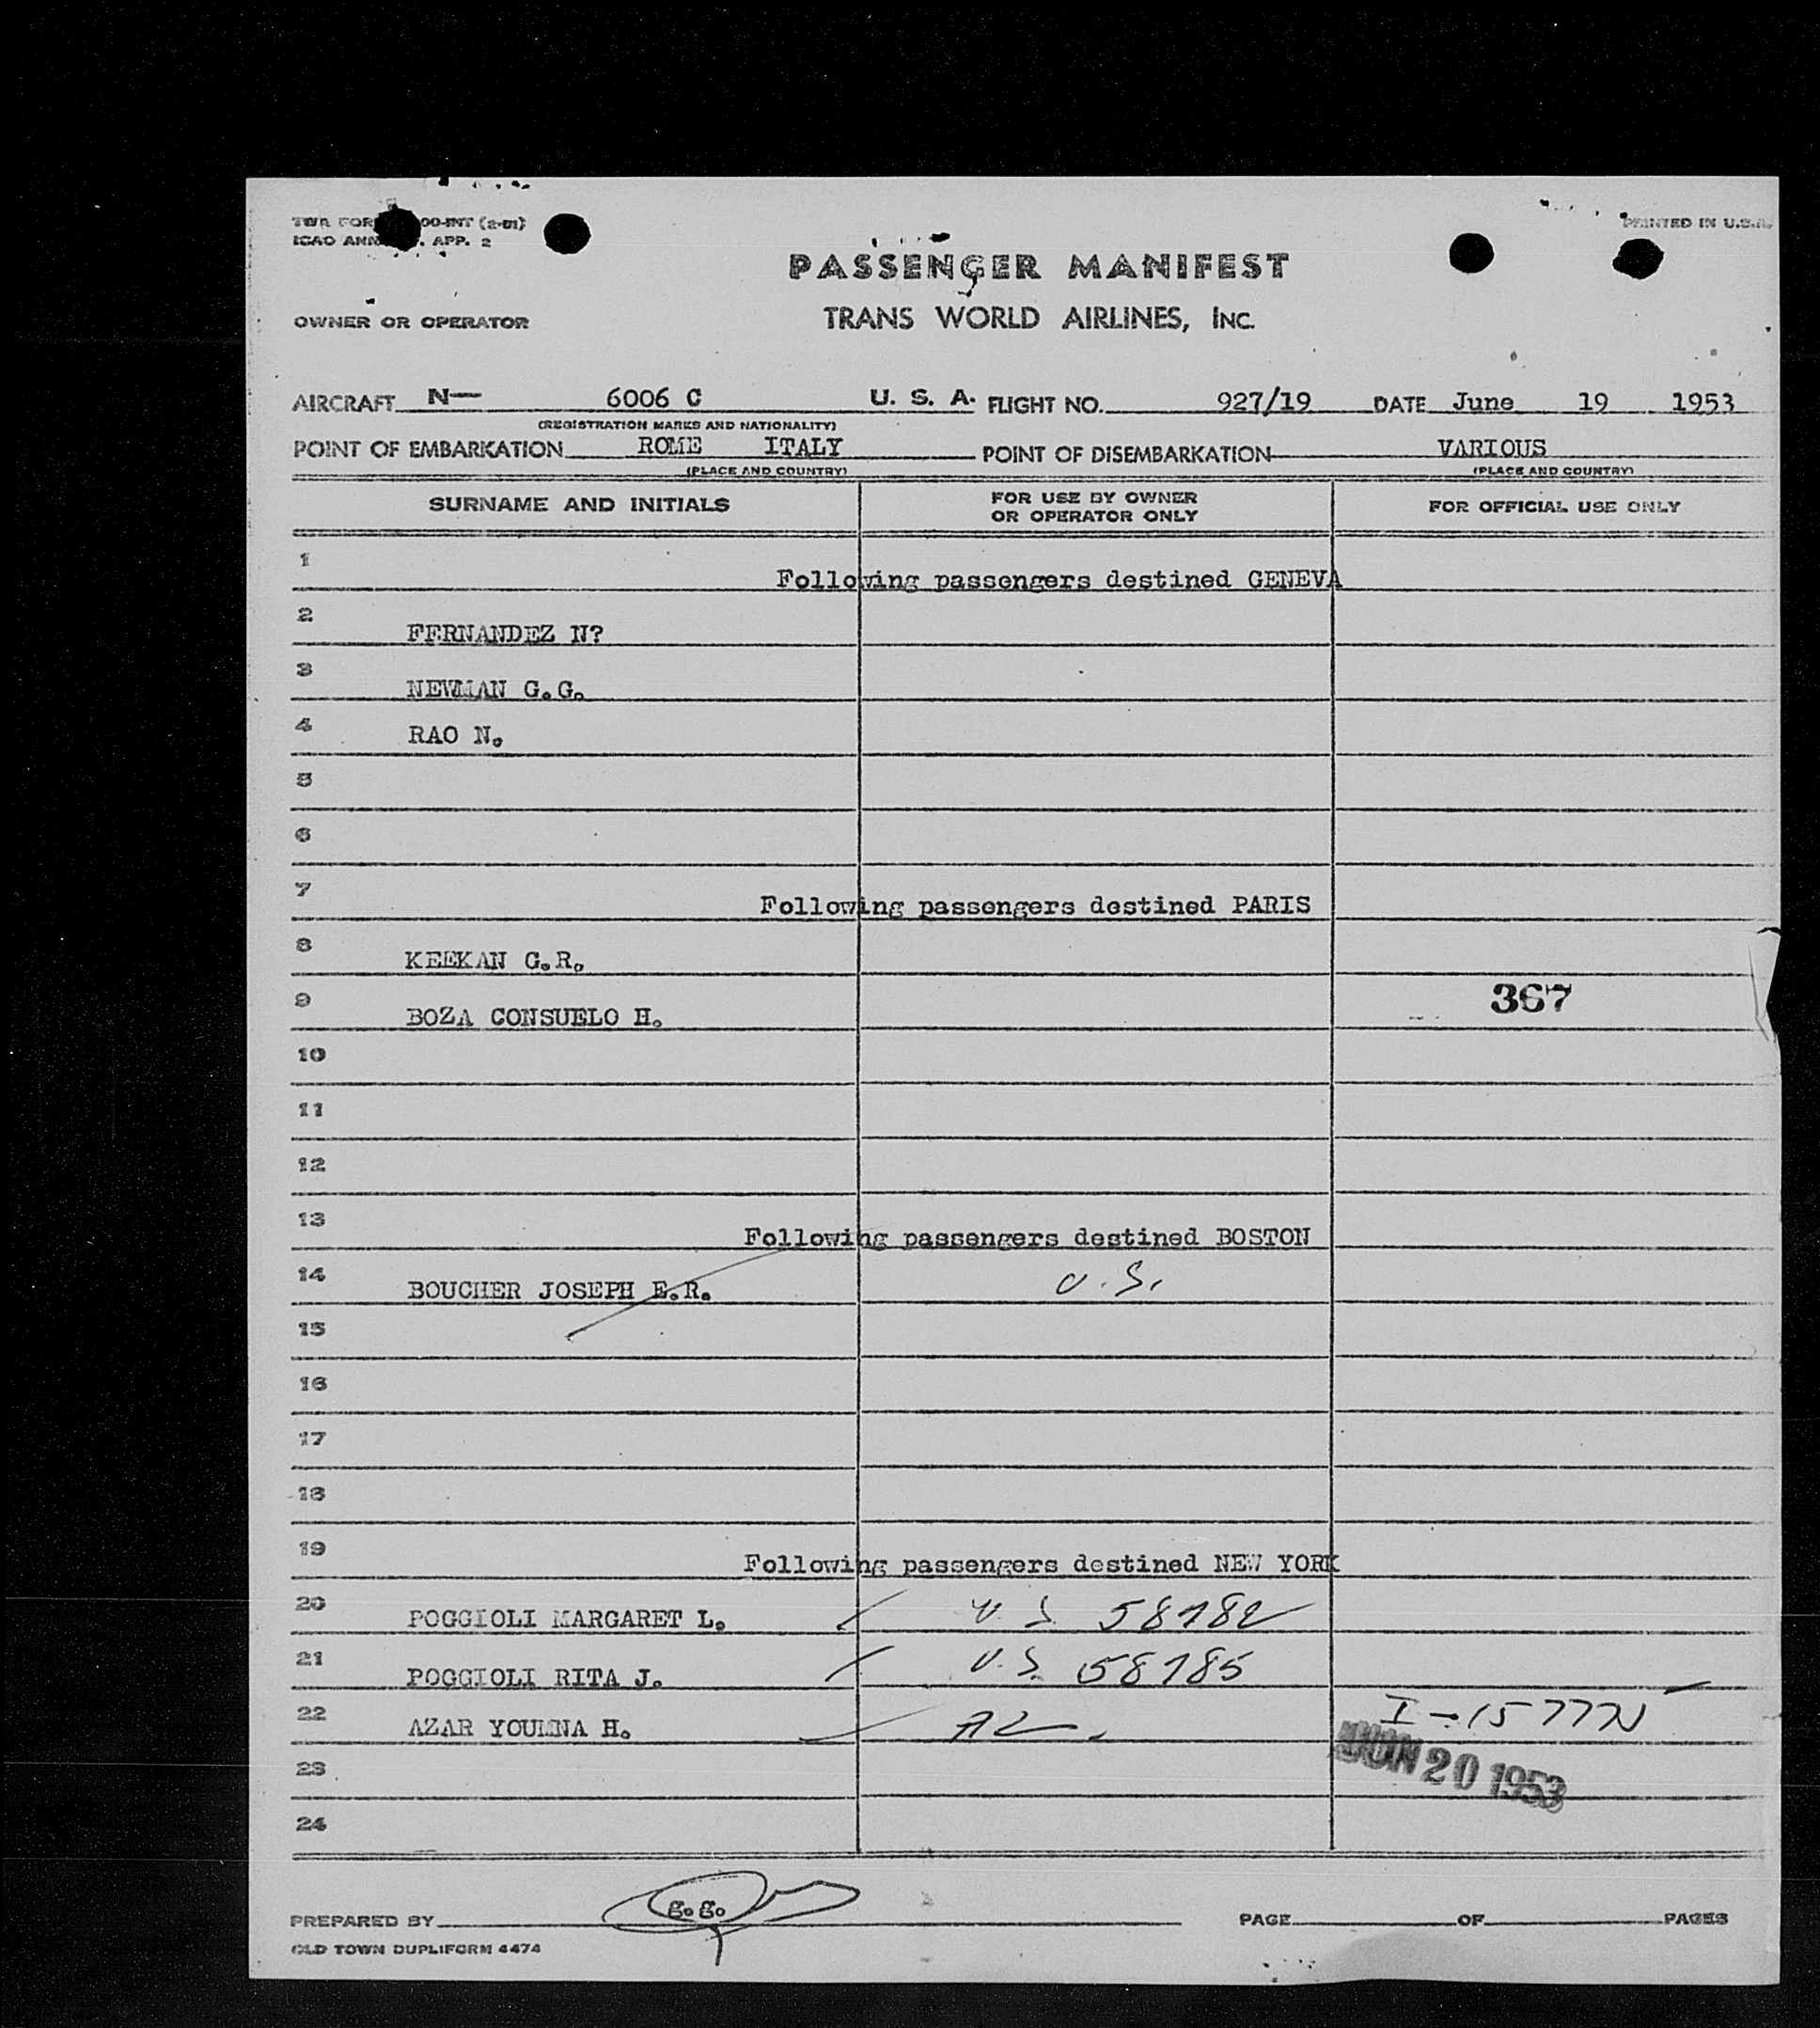 PRINTED IN U.S.A.
ICAO ANN . APP. 2
PASSENGER MANIFEST
OWNER OR OPERATOR TRANS WORLD AIRLINES, INC.
AIRCRAFT N— 6006 C U. S. A. FLIGHT NO. 927/19 DATE June 19 1953
(REGISTRATION MARKS AND NATIONALITY)
POINT OF EMBARKATION ROME ITALY POINT OF DISEMBARKATION VARIOUS
(PLACE AND COUNTRY) (PLACE AND COUNTRY)
SURNAME AND INITIALS FOR USE BY OWNER OR OPERATOR ONLY FOR OFFICIAL USE ONLY
1 Following passengers destined GENEVA
2 FERNANDEZ N?
3 NEWMAN G.G.
4 RAO N.
5
6
7 Following passengers destined PARIS
8 KEEKAN G.R.
9 BOZA CONSUELO H. 367
10
11
12
13 Following passengers destined BOSTON
14 BOUCHER JOSEPH E.R. U.S.
15
16
17
18
19 Following passengers destined NEW YORK
20 POGGIOLI MARGARET L. U.S. 58182
21 POGGIOLI RITA J. U.S. 58185
22 AZAR YOUMNA H.
JUN 20 1953
23
24
PREPARED BY g.g. PAGE OF PAGES
OLD TOWN DUPLIFORM 4474